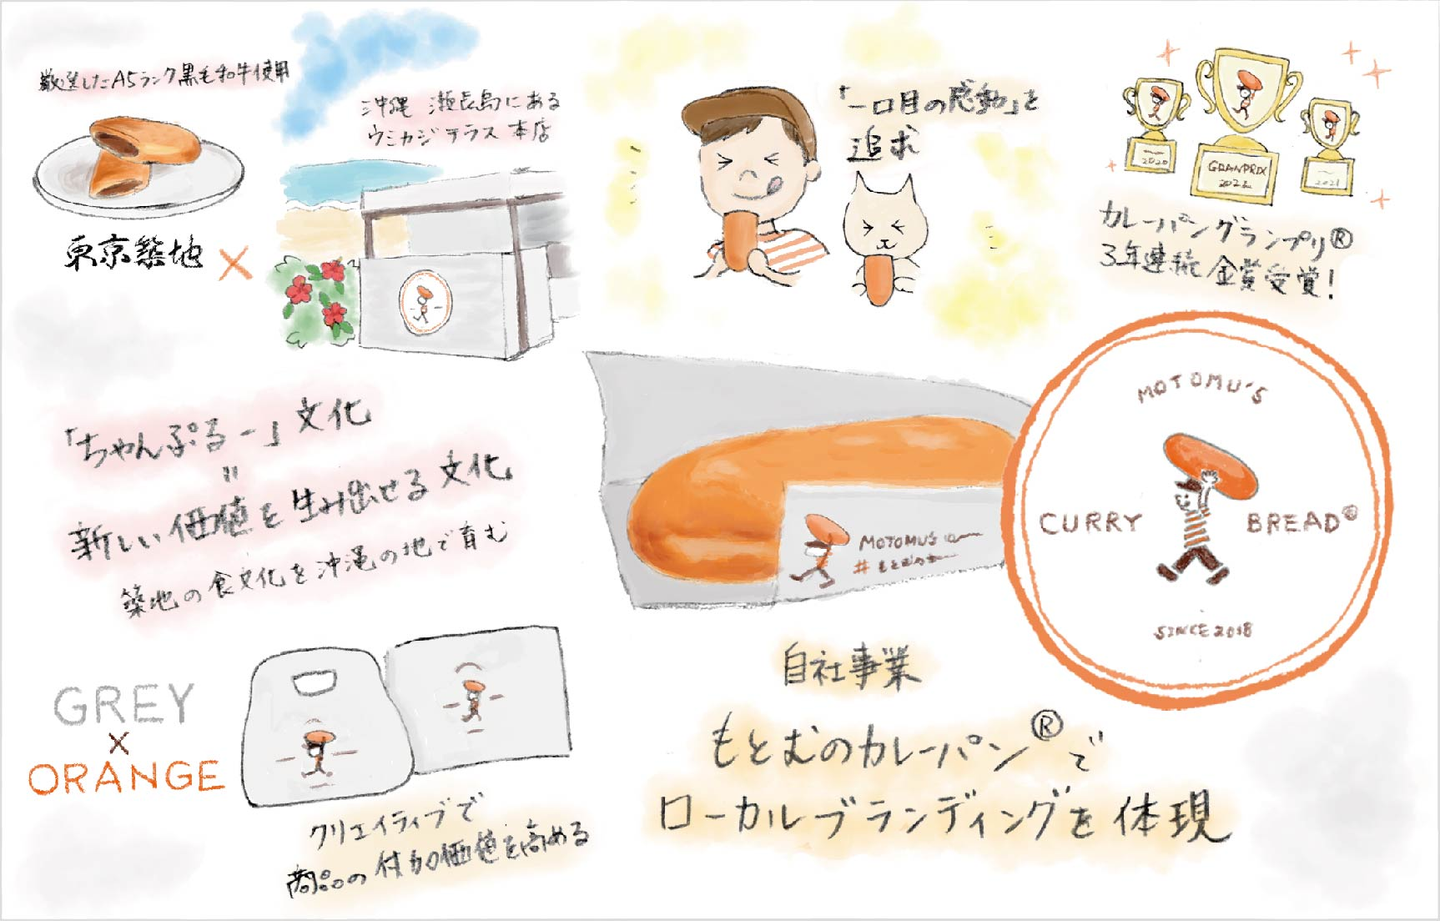 厳選したA5ランク黒毛和牛使用
東京築地 ×
沖縄 瀬長島にある
ウミカジテラス 本店
「一口目の感動」を
追求
2020
GRANPRIX
2022
2021
カレーパングランプリ®
3年連続 金賞受賞!
「ちゃんぷるー」文化
=
新しい価値を生み出せる文化
築地の食文化を沖縄の地で育む
MOTOMU'S
#もとむの
MOTOMU'S
CURRY BREAD®
SINCE 2018
GREY
×
ORANGE
クリエイティブで
商品の付加価値を高める
自社事業
もとむのカレーパン®で
ローカルブランディングを体現